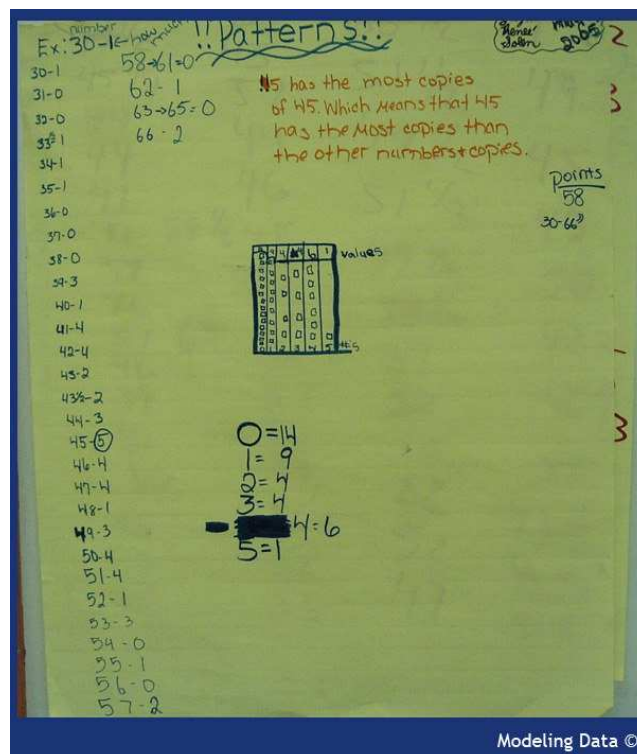 number
Ex: 30-1 ← how much
!!Patterns!!
Renee
2005
30-1
31-0
32-0
33½-1
34-1
35-1
36-0
37-0
38-0
39-3
40-1
41-4
42-4
43-2
43½-2
44-3
45-5
46-4
47-4
48-1
49-3
50-4
51-4
52-1
53-3
54-0
55-1
56-0
57-2
58→61=0
62-1
63→65=0
66-2
45 has the most copies
of 45. Which means that 45
has the most copies than
the other numbers + copies.
points
58
30-66
values
0 1 2 3 4 5
#'s
0=14
1= 9
2= 4
3= 4
4=6
5=1
Modeling Data ©